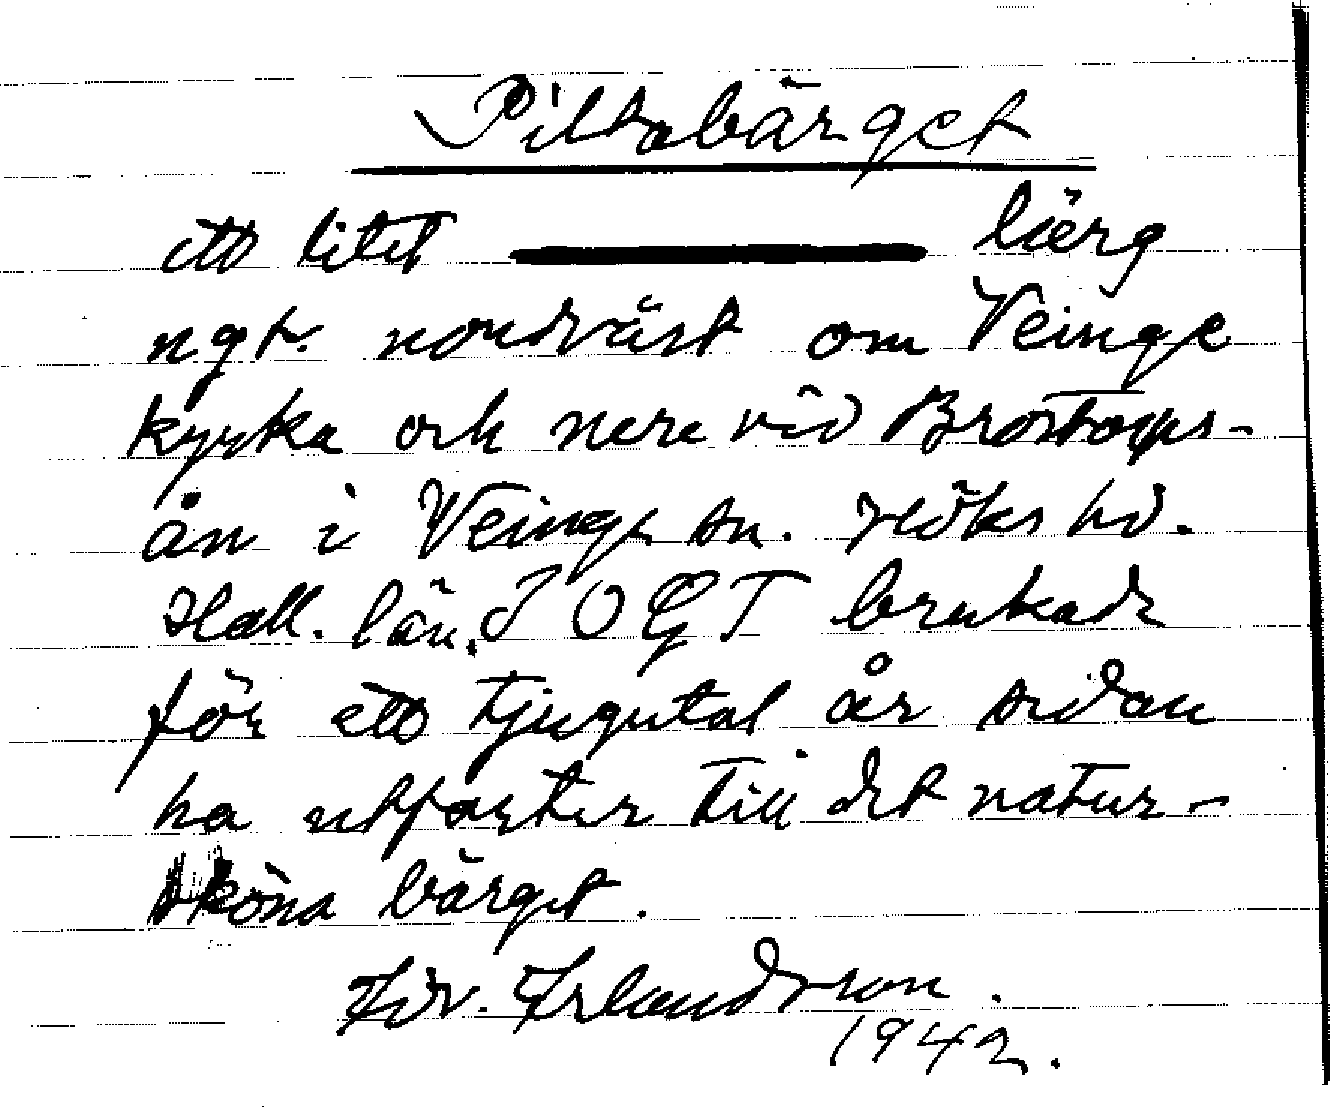 Piltabärget
ett litet bärg
ngt. nordväst om Veinge
kyrka och nere vid Brostorps-
ån i Veinge sn. Höks hd.
Hall. län. IOGT brukade
för ett tjugutal år sidan
ha utfarter till det natur-
sköna bärget.
Erlandsson.
1942.